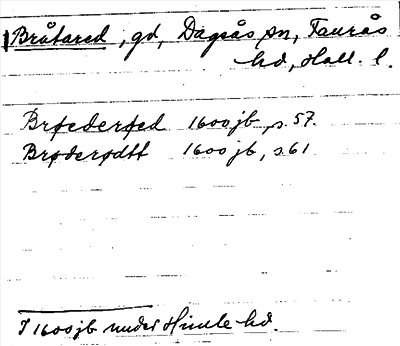 Bråtared, gd, Dagsås sn, Faurås
hd, Hall. l.
Brøederøed 1600 jb, s. 57.
Brøderødtt 1600 jb, s. 61
I 1600 jb under Himle hd.